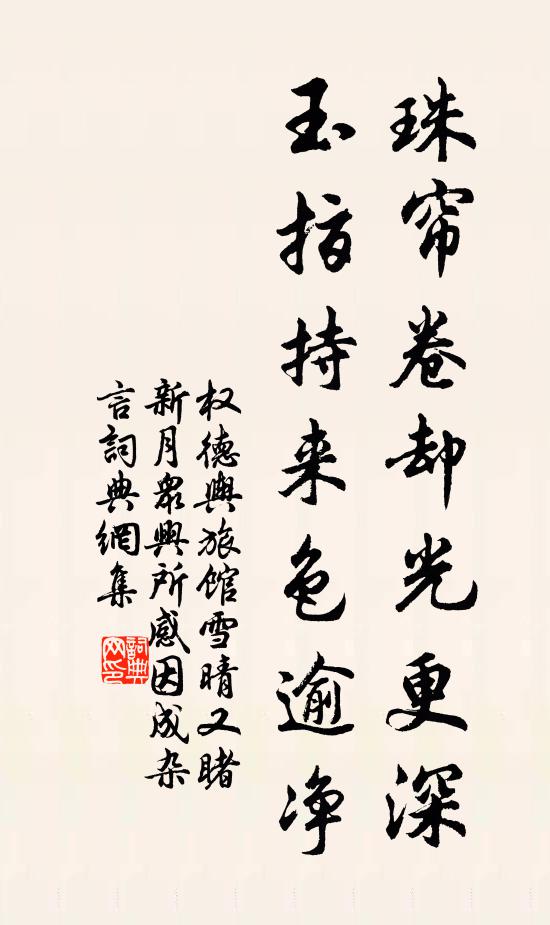 珠帘卷却光更深
玉指持来色逾净
权德舆旅馆雪晴又睹
新月眾興所感因成杂
言詞典網集
詞典
网印